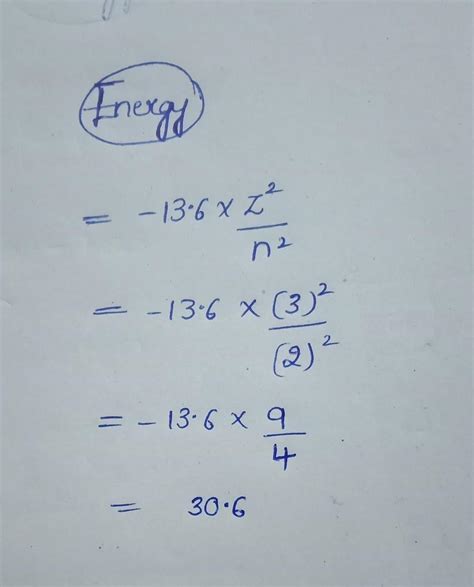 Energy
= -13.6 × Z²/n²
= -13.6 × (3)²/(2)²
= -13.6 × 9/4
= 30.6